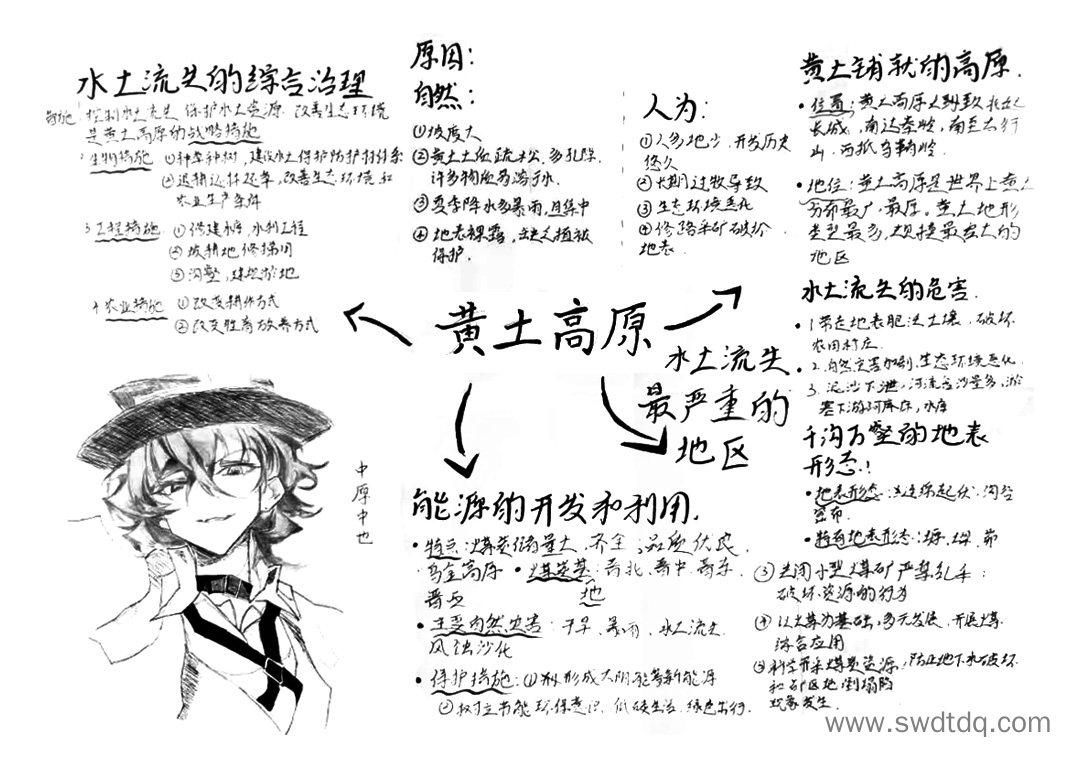 水土流失的综合治理
措施:控制水土流失 保护水土资源 改善生态环境
是黄土高原的战略措施
生物措施 ①种草种树,建设水土保护防护林体系
②退耕还林还草,改善生态环境和
农业生产条件
3工程措施 ①修建水库,水利工程
②坡耕地修梯田
③沟壑,建淤地
4农业措施 ①改变耕作方式
②改变牲畜放养方式
原因:
自然:
①坡度大
②黄土土质疏松,多孔隙,
许多物质易溶于水
③夏季降水多暴雨,且集中
④地表裸露,缺乏植被
保护.
人为:
①人多地少,开发历史
悠久
②长期过牧导致
③生态环境恶化
④修路采矿破坏
地表
黄土铺就的高原.
•位置:黄土高原大致北起
长城,南达秦岭,南至太行
山,西抵乌鞘岭.
•地位:黄土高原是世界上黄土
分布最广,最厚,黄土地形
类型最多,规模最宏大的
地区
水土流失的危害.
•1带走地表肥沃土壤,破坏
农田村庄.
•2.自然灾害加剧,生态环境恶化.
3.泥沙下泄,河流含沙量多,淤
塞下游河库床,水库
千沟万壑的地表
形态!
•地表形态:连绵起伏,沟谷
密布.
•特有地表形态:塬,墚,峁
黄土高原
水土流失
最严重的
地区
中原中也
能源的开发和利用.
•特点:煤炭储量大,齐全,品质优良,
乌金高原 •煤炭基地:晋北、晋中、晋东、
晋西
•主要自然灾害:干旱、暴雨、水土流失
风蚀沙化
•保护措施:①利形成太阳能等新能源
②树立节能环保意识,低碳生活,绿色出行.
③关闭小型煤矿严禁乱采
破坏资源的行为
④以煤为基础,多元发展,开展煤
综合应用
⑤科学开采煤炭资源,防止地下水破坏
和矿区地面塌陷
现象发生.
www.swdtdq.com